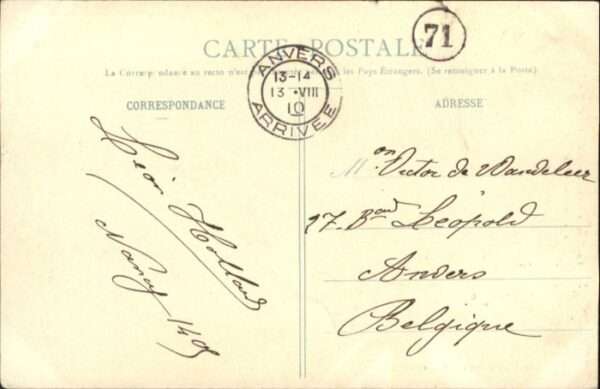 71
CARTE POSTALE
La Correspondance au recto n'est les Pays Étrangers. (Se renseigner à la Poste).
ANVERS
13-14
13 · VIII
10
ARRIVÉE
CORRESPONDANCE
ADRESSE
Léon Holland
Nancy
Mon Victor de
27. Bard Léopold
Anvers
Belgique